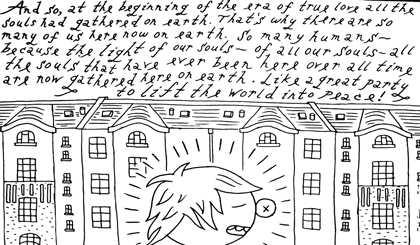 And so, at the beginning of the era of true love all the
souls had gathered on earth. That's why there are so
many of us here now on earth. So many humans~
because the light of our souls~ of all our souls~all
the souls that have ever been here over all time
are now gathered here on earth. Like a great party
to lift the world into peace!